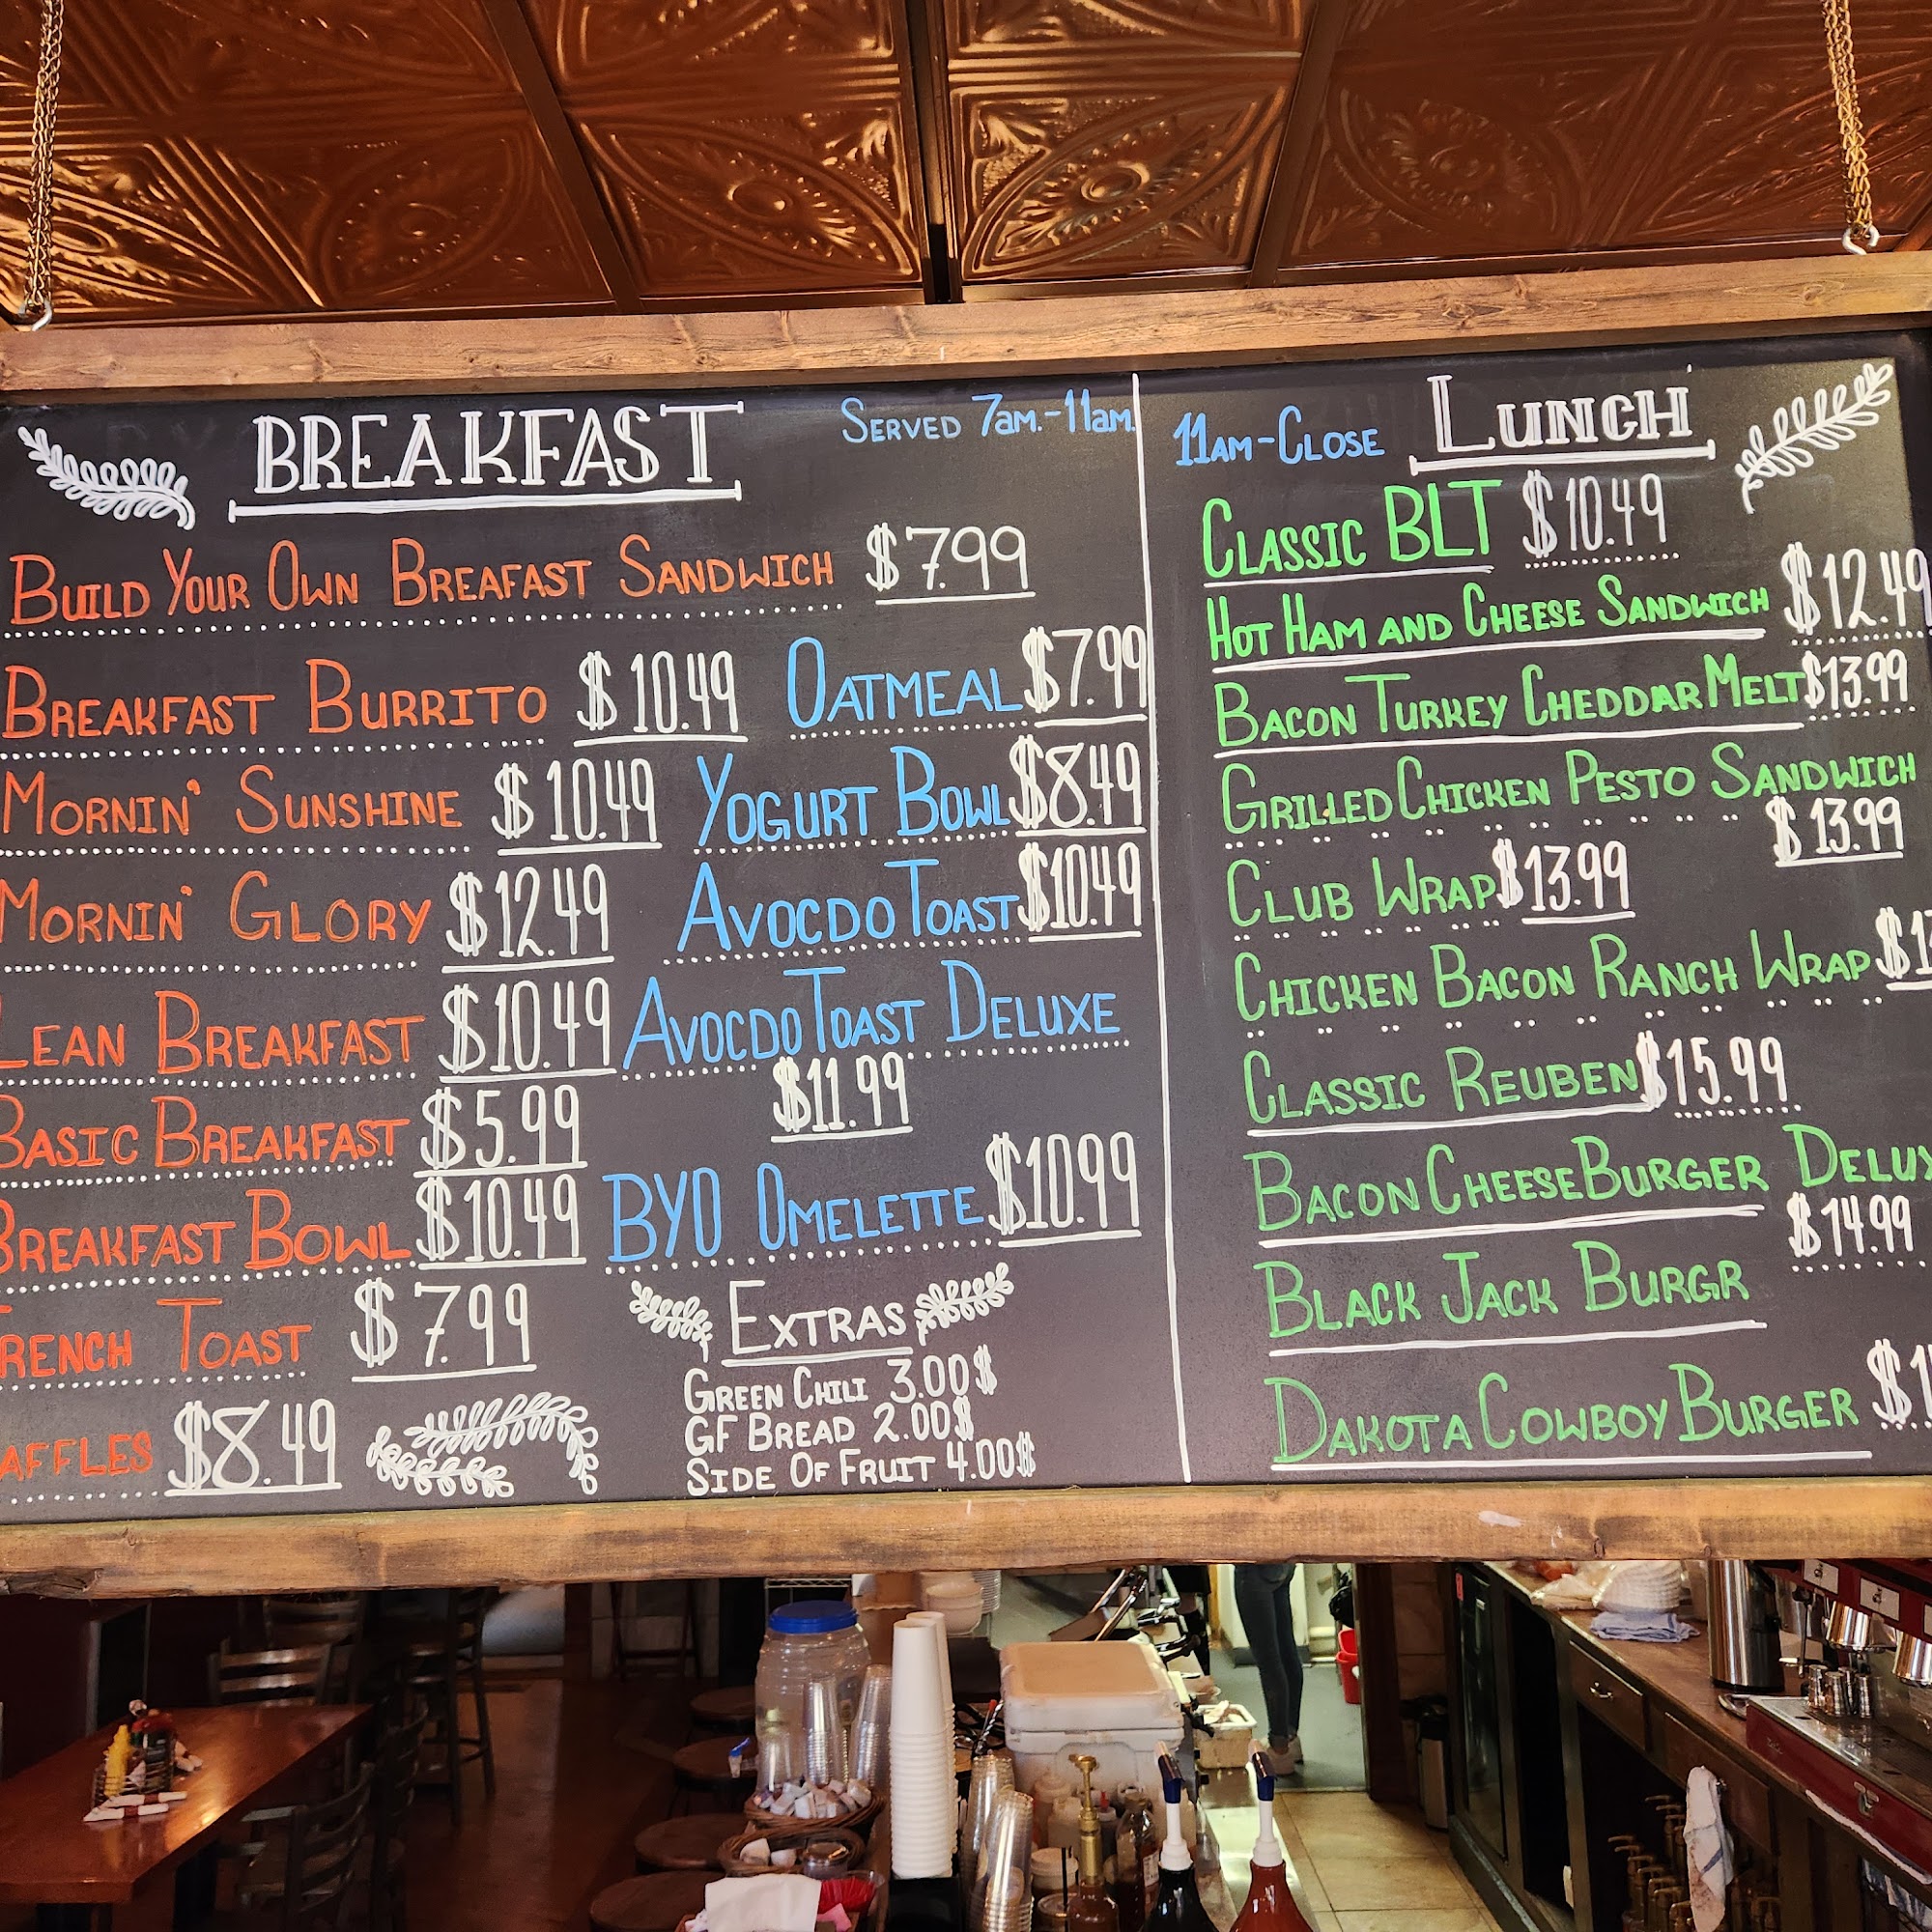 BREAKFAST
SERVED 7AM.-11AM.
BUILD YOUR OWN BREAFAST SANDWICH $7.99
BREAKFAST BURRITO $10.49
MORNIN' SUNSHINE $10.49
MORNIN' GLORY $12.49
LEAN BREAKFAST $10.49
BASIC BREAKFAST $5.99
BREAKFAST BOWL $10.49
FRENCH TOAST $7.99
AFFLES $8.49
OATMEAL $7.99
YOGURT BOWL $8.49
AVOCDO TOAST $10.49
AVOCDO TOAST DELUXE
$11.99
BYO OMELETTE $10.99
EXTRAS
GREEN CHILI 3.00$
GF BREAD 2.00$
SIDE OF FRUIT 4.00$
11AM-CLOSE LUNCH
CLASSIC BLT $10.49
HOT HAM AND CHEESE SANDWICH $12.49
BACON TURKEY CHEDDAR MELT $13.99
GRILLED CHICKEN PESTO SANDWICH
$13.99
CLUB WRAP $13.99
CHICKEN BACON RANCH WRAP
CLASSIC REUBEN $15.99
BACON CHEESEBURGER DELUX
$14.99
BLACK JACK BURGR
DAKOTA COWBOY BURGER